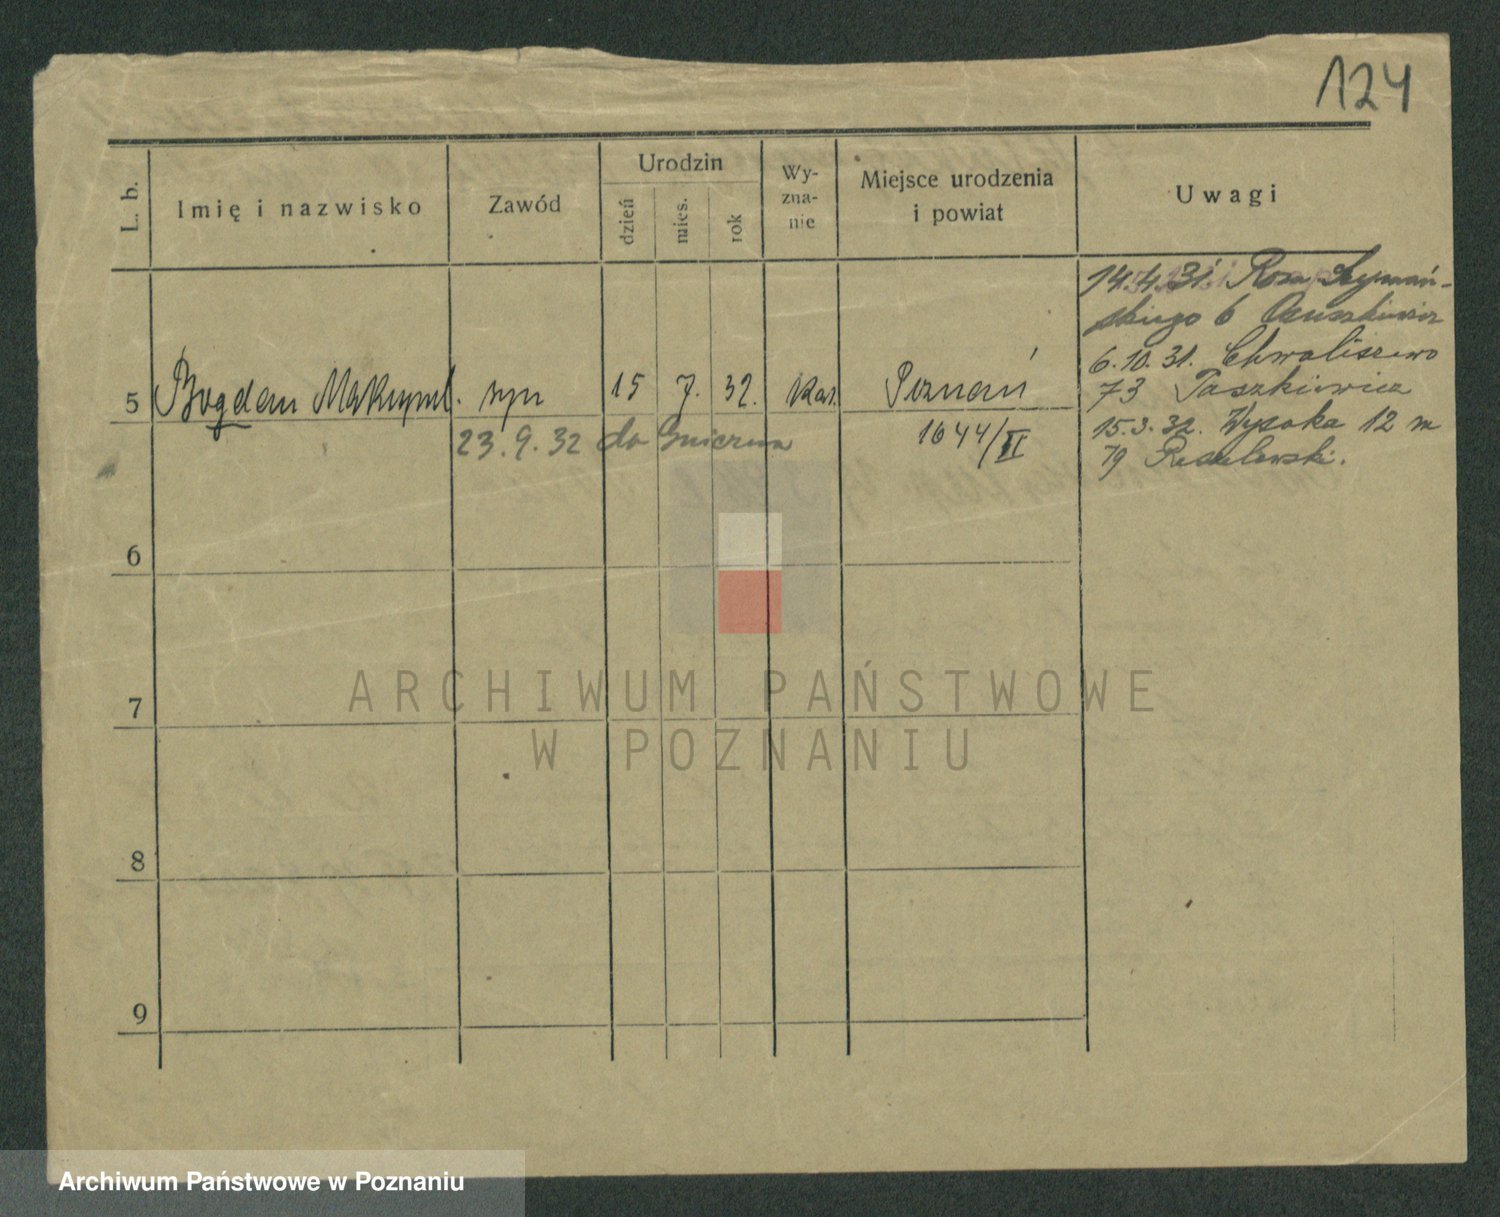 124
L. b.
Imię i nazwisko
Zawód
Urodzin
dzień
mies.
rok
Wy-
zna-
nie
Miejsce urodzenia
i powiat
Uwagi
14.4.31.
skiego 6
6.10.31. Chwaliszewo
73 Paszkiewicz
15.3.32. Wysoka 12 m
19
5 Bogdan Maksymil. syn 15 7. 32. Kat. Poznań
23.9.32 do Gniezna
1644/II
6
7
8
9
ARCHIWUM PAŃSTWOWE
W POZNANIU
Archiwum Państwowe w Poznaniu